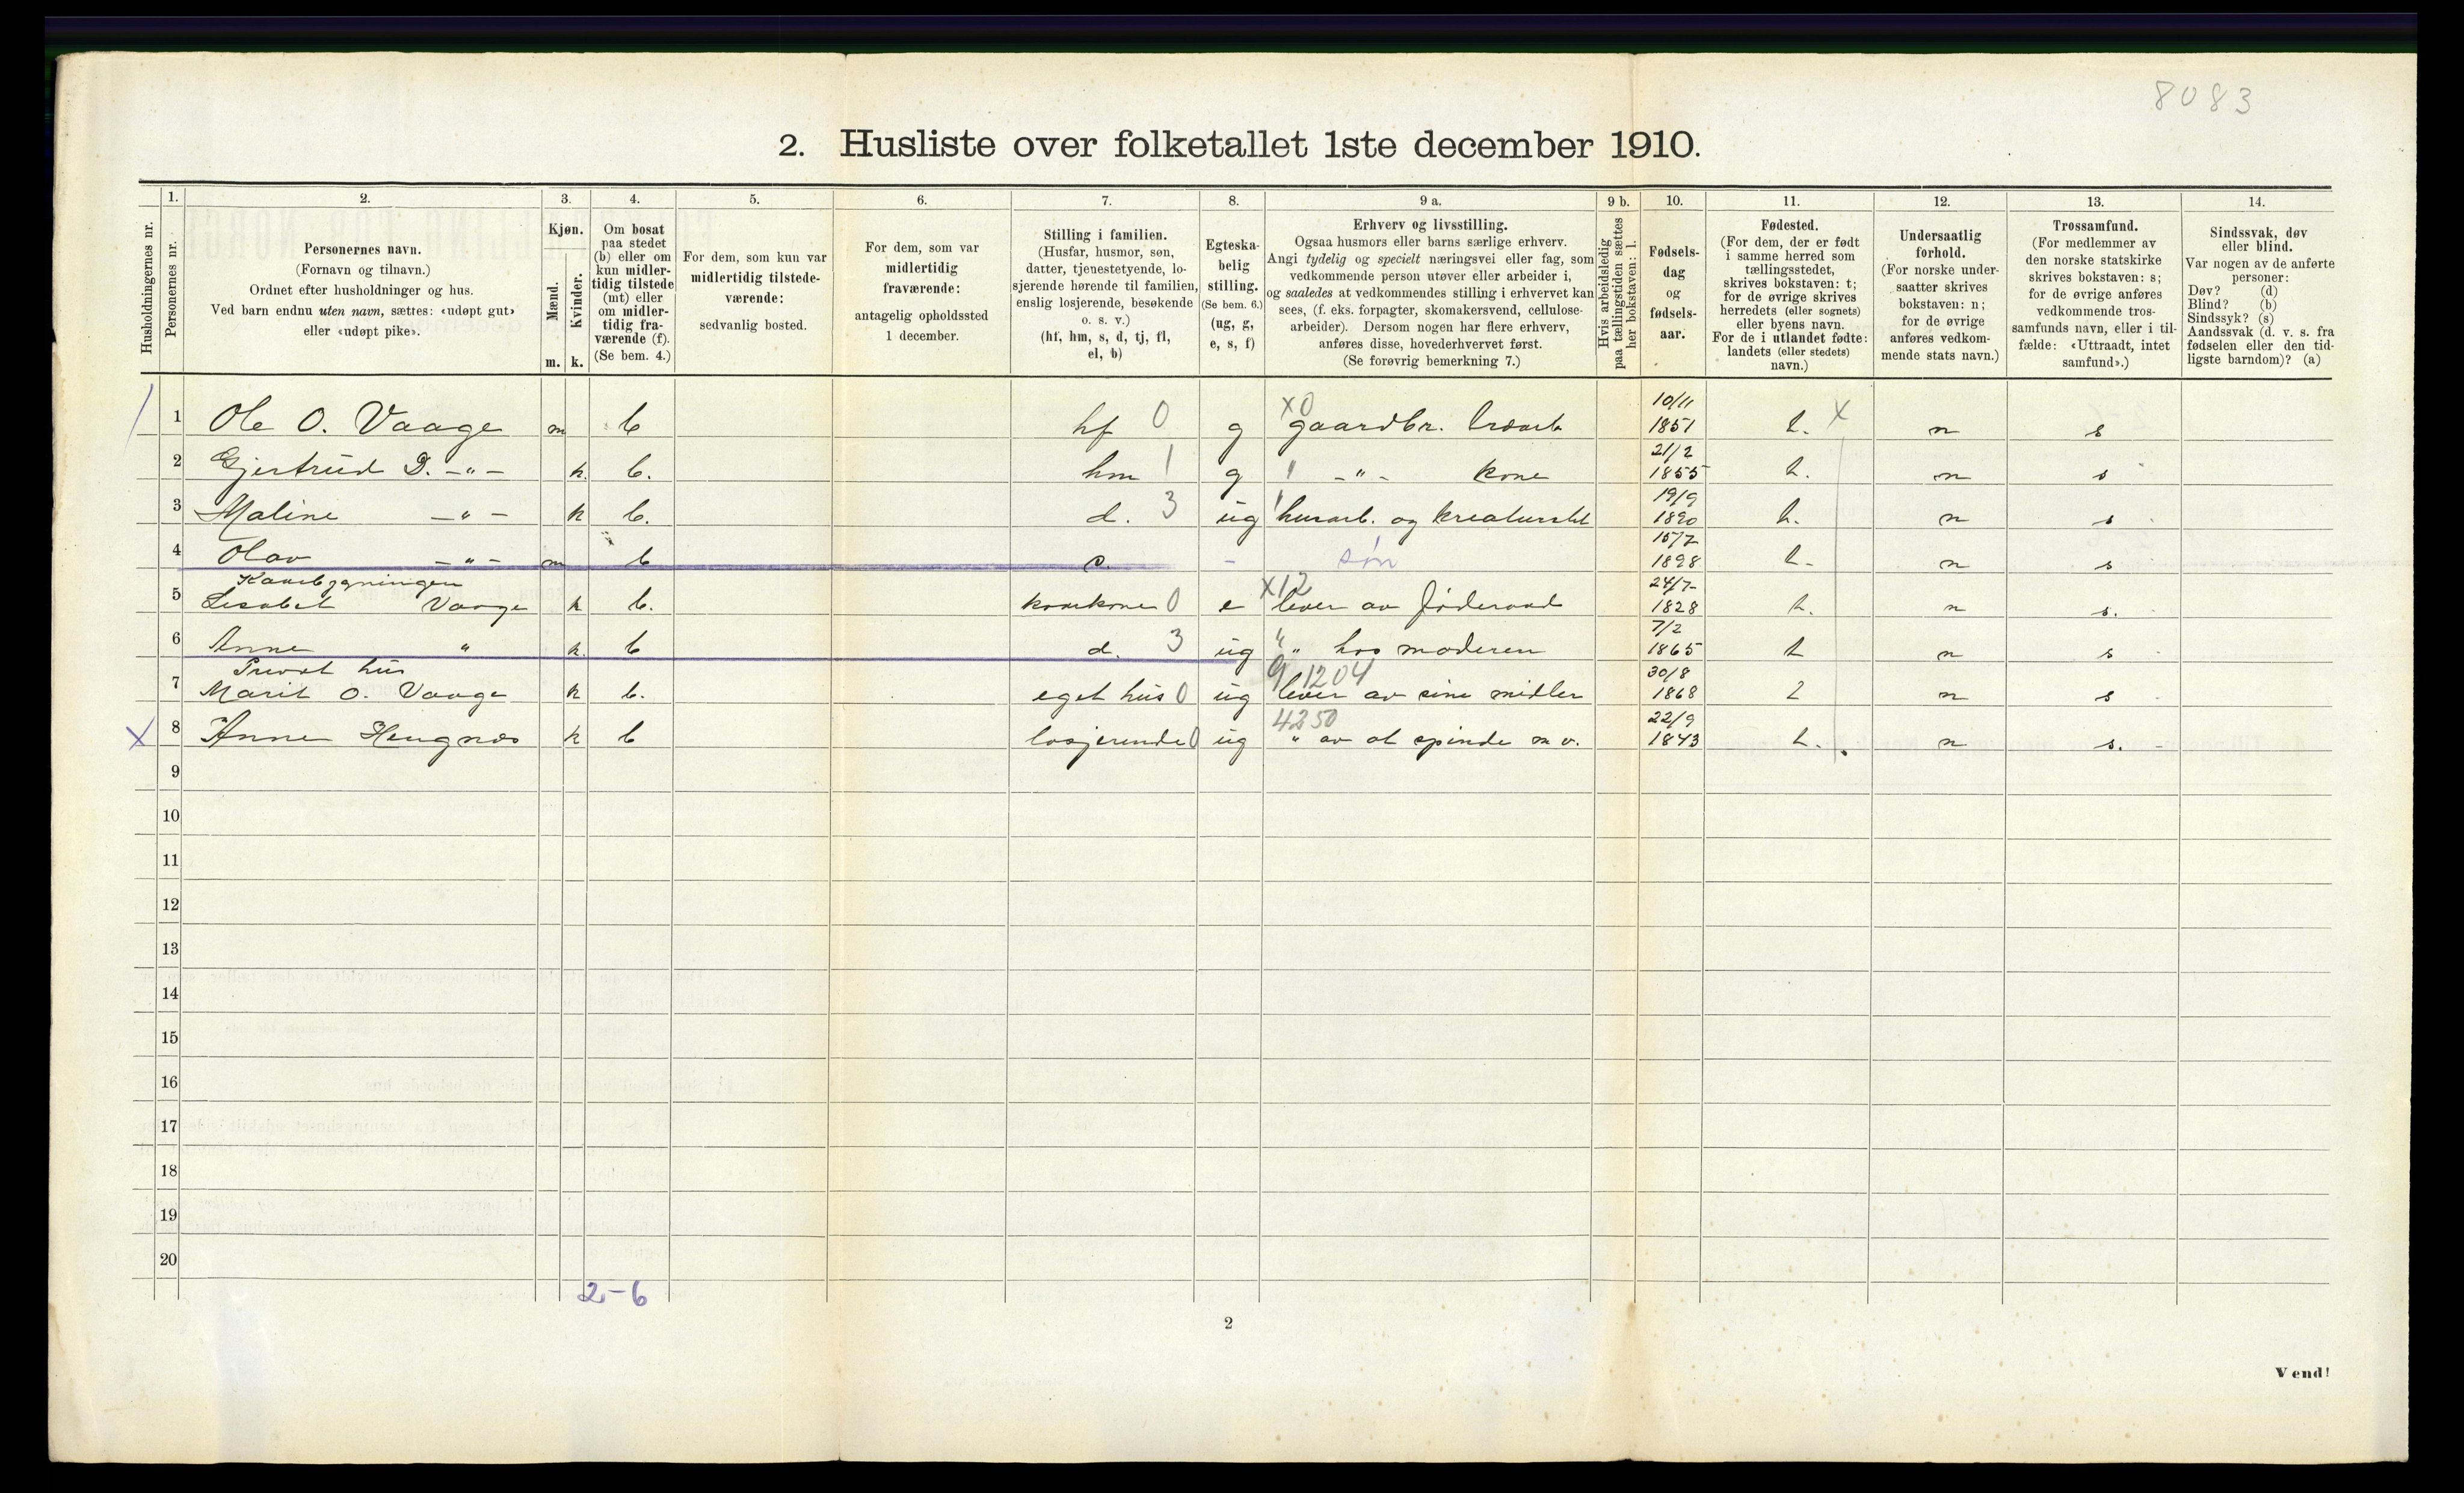 8083
2. Husliste over folketallet 1ste december 1910.
Husholdningernes nr.
1.
Personernes nr.
2.
Personernes navn.
(Fornavn og tilnavn.)
Ordnet efter husholdninger og hus.
Ved barn endnu uten navn, sættes: «udøpt gut»
eller «udøpt pike».
3.
Kjøn.
Mænd.
Kvinder.
m. k.
4.
Om bosat
paa stedet
(b) eller om
kun midler-
tidig tilstede
(mt) eller
om midler-
tidig fra-
værende (f).
(Se bem. 4.)
5.
For dem, som kun var
midlertidig tilstede-
værende:
sedvanlig bosted.
6.
For dem, som var
midlertidig
fraværende:
antagelig opholdssted
1 december.
7.
Stilling i familien.
(Husfar, husmor, søn,
datter, tjenestetyende, lo-
sjerende hørende til familien,
enslig losjerende, besøkende
o. s. v.)
(hf, hm, s, d, tj, fl,
el, b)
8.
Egteska-
belig
stilling.
(Se bem. 6.)
(ug, g,
e, s, f)
9 a.
Erhverv og livsstilling.
Ogsaa husmors eller barns særlige erhverv.
Angi tydelig og specielt næringsvei eller fag, som
vedkommende person utøver eller arbeider i,
og saaledes at vedkommendes stilling i erhvervet kan
sees, (f. eks. forpagter, skomakersvend, cellulose-
arbeider). Dersom nogen har flere erhverv,
anføres disse, hovederhvervet først.
(Se forøvrig bemerkning 7.)
9 b.
Hvis arbeidsledig
paa tællingstiden sættes
her bokstaven: l.
10.
Fødsels-
dag
og
fødsels-
aar.
11.
Fødested.
(For dem, der er født
i samme herred som
tællingsstedet,
skrives bokstaven: t;
for de øvrige skrives
herredets (eller sognets)
eller byens navn.
For de i utlandet fødte:
landets (eller stedets)
navn.)
12.
Undersaatlig
forhold.
(For norske under-
saatter skrives
bokstaven: n;
for de øvrige
anføres vedkom-
mende stats navn.)
13.
Trossamfund.
(For medlemmer av
den norske statskirke
skrives bokstaven: s;
for de øvrige anføres
vedkommende tros-
samfunds navn, eller i til-
fælde: «Uttraadt, intet
samfund».)
14.
Sindssvak, døv
eller blind.
Var nogen av de anførte
personer:
Døv? (d)
Blind? (b)
Sindssyk? (s)
Aandssvak (d. v. s. fra
fødselen eller den tid-
ligste barndom)? (a)
1 Ole O. Vaage m b hf 0 g x0 gaardbr. 10/11 1851 t. x n s
2 Gjertrud -"- k. b. hm 1 g 1 -"- kone 21/2 1855 t. n s
3 Maline -"- k b. d. 3 ug 1 husarb. og kreaturstel 19/9 1890 t. n s
4 Olav -"- m b s. - søn 15/7 1898 t- n s
Kaarbygningen
5 Lisabet Vaage k b. kaarkone 0 e x12 lever av føderaad 24/7 1828 t. n s.
6 Anne " k. b d. 3 ug " " hos moderen 7/2 1865 t n s
Privat hus
7 Marit O. Vaage k b. eget hus 0 ug 9 1204 lever av sine midler 30/8 1868 t n s
x 8 Anne Hengnæs k b losjerende 0 ug 4250 " av at spinde m v. 22/9 1843 t. n s.
9
10
11
12
13
14
15
16
17
18
19
20
2-6
2
Vend!